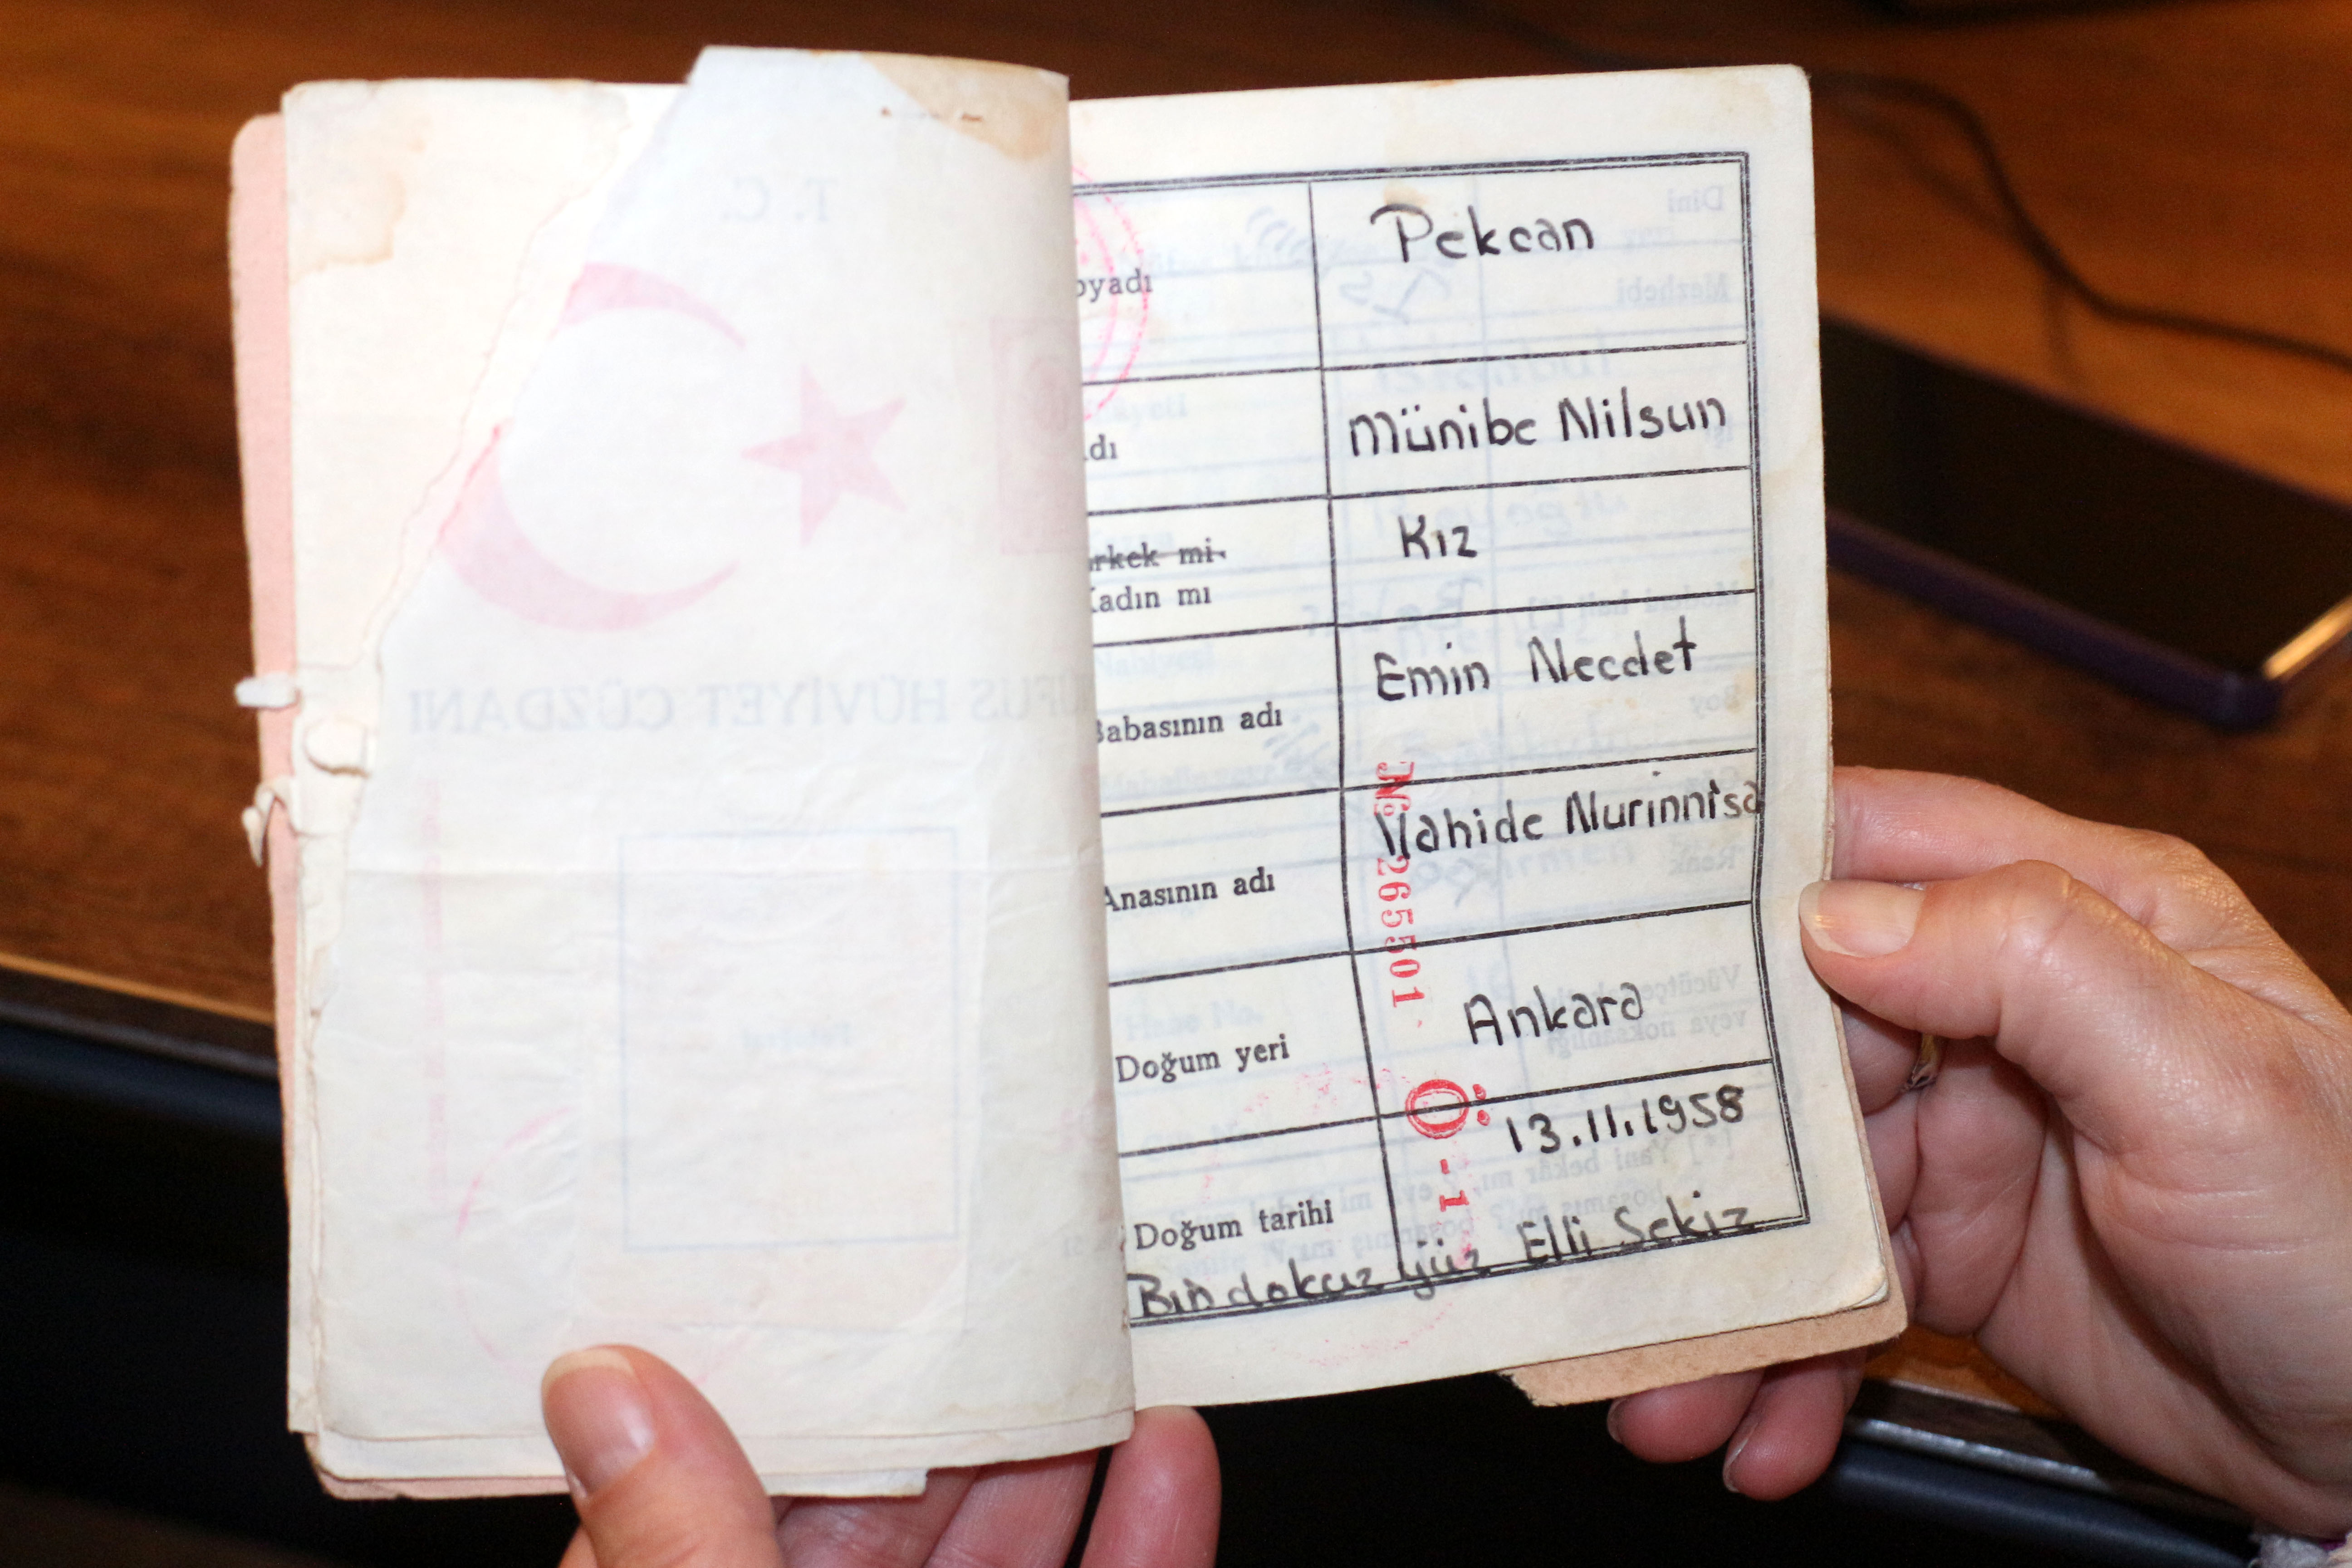 Pekcan
oyadı
Münibe Nilsun
dı
Kız
rkek mi
adın mı
Emin Necdet
Babasının adı
Vahide Nurinnisa
Anasının adı
Ankara
Doğum yeri
13.11.1958
Doğum tarihi
Bin dokuz yüz Elli Sekiz
№ 265501
Ö-1
T. C.
NÜFUS HÜVİYET CÜZDANI
Dini
Mezhebi
Boy
Renk